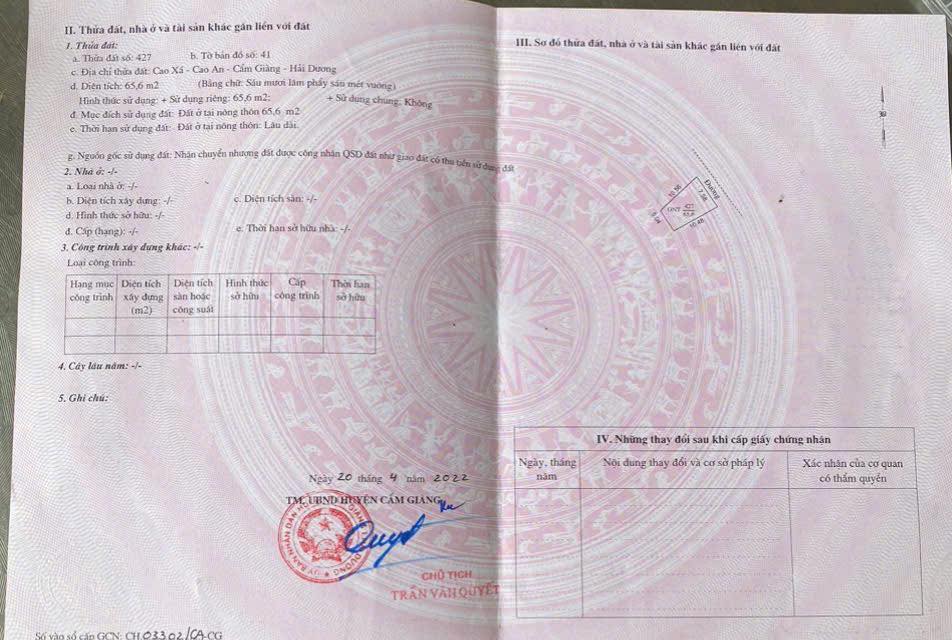 II. Thửa đất, nhà ở và tài sản khác gắn liền với đất
1. Thửa đất:
a. Thửa đất số: 427 b. Tờ bản đồ số: 41
c. Địa chỉ thửa đất: Cao Xá - Cao An - Cẩm Giàng - Hải Dương
d. Diện tích: 65,6 m2 (Bằng chữ: Sáu mươi lăm phẩy sáu mét vuông)
Hình thức sử dụng: + Sử dụng riêng: 65,6 m2; + Sử dụng chung: Không
đ. Mục đích sử dụng đất: Đất ở tại nông thôn 65,6 m2
e. Thời hạn sử dụng đất: Đất ở tại nông thôn: Lâu dài.
g. Nguồn gốc sử dụng đất: Nhận chuyển nhượng đất được công nhận QSD đất như giao đất có thu tiền sử dụng đất
2. Nhà ở: -/-
a. Loại nhà ở: -/-
b. Diện tích xây dựng: -/- c. Diện tích sàn: -/-
d. Hình thức sở hữu: -/-
đ. Cấp (hạng): -/- e. Thời hạn sở hữu nhà: -/-
3. Công trình xây dựng khác: -/-
Loại công trình:
Hạng mục công trình
Diện tích xây dựng (m2)
Diện tích sàn hoặc công suất
Hình thức sở hữu
Cấp công trình
Thời hạn sở hữu
4. Cây lâu năm: -/-
5. Ghi chú:
Ngày 20 tháng 4 năm 2022
TM. UBND HUYỆN CẨM GIÀNG
CHỦ TỊCH
TRẦN VĂN QUYẾT
Số vào sổ cấp GCN: CH 03302/CA-CG
III. Sơ đồ thửa đất, nhà ở và tài sản khác gắn liền với đất
Đường
ONT 427
65,6
10.48
IV. Những thay đổi sau khi cấp giấy chứng nhận
Ngày, tháng năm
Nội dung thay đổi và cơ sở pháp lý
Xác nhận của cơ quan có thẩm quyền